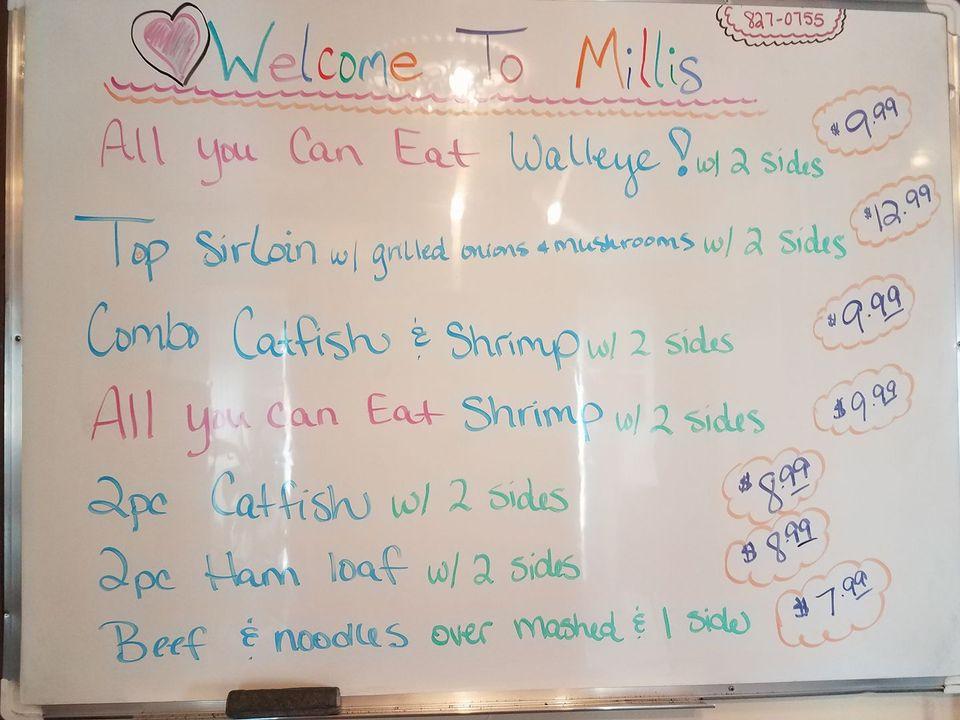 Welcome To Millis
& 827-0755
All you Can Eat Walleye! w/ 2 sides $9.99
Top Sirloin w/ grilled onions & mushrooms w/ 2 sides $12.99
Combo Catfish & Shrimp w/ 2 sides $9.99
All you can Eat Shrimp w/ 2 sides $9.99
2pc Catfish w/ 2 sides $8.99
2pc Ham loaf w/ 2 sides $8.99
Beef & noodles over mashed & 1 side $7.99